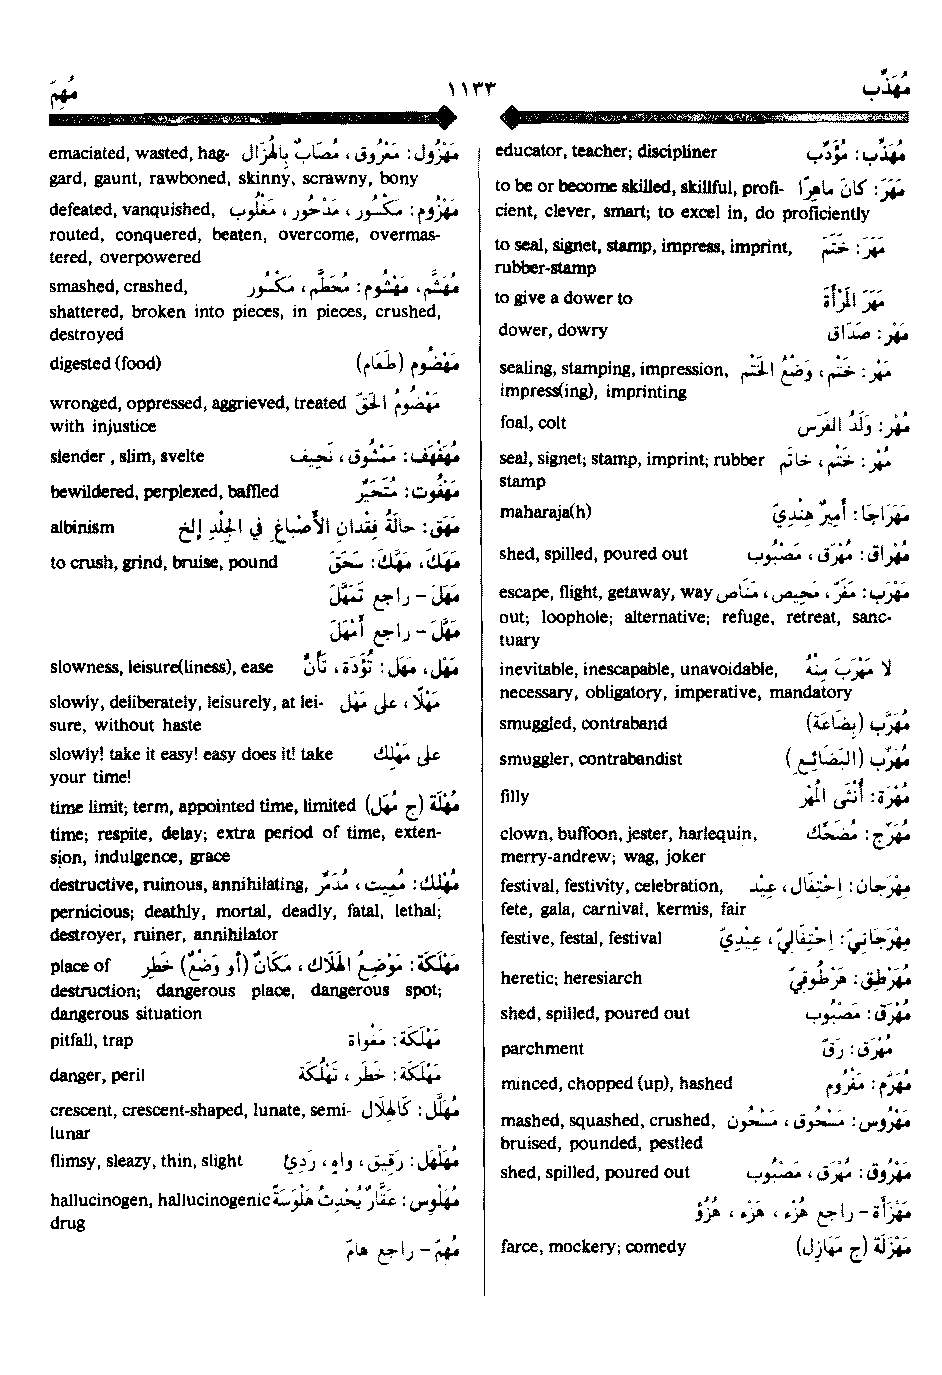 مُهَذِّب
١١٣٣
مُهِمّ
educator, teacher; discipliner مُهَذِّب: مُؤَدِّب
to be or become skilled, skillful, profi- مَهَرَ: كَانَ مَاهِرًا
cient, clever, smart; to excel in, do proficiently
to seal, signet, stamp, impress, imprint, مَهَرَ: خَتَمَ
rubber-stamp
to give a dower to مَهَرَ المَرْأَةَ
dower, dowry مَهْر: صَدَاق
sealing, stamping, impression, مَهْر: خَتْم، وَضْعُ الخَتْم
impress(ing), imprinting
foal, colt مُهْر: وَلَدُ الفَرَس
seal, signet; stamp, imprint; rubber مُهْر: خَتْم، خَاتَم
stamp
maharaja(h) مَهَرَاجَا: أَمِيرٌ هِنْدِيّ
shed, spilled, poured out مُهْرَاق: مُهْرَق، مَصْبُوب
escape, flight, getaway, way مَهْرَب: مَفَرّ، مَحِيص، مَنَاص
out; loophole; alternative; refuge, retreat, sanc-
tuary
inevitable, inescapable, unavoidable, لا مَهْرَبَ مِنْهُ
necessary, obligatory, imperative, mandatory
smuggled, contraband مُهَرَّب (بِضَاعَة)
smuggler, contrabandist مُهَرِّب (البَضَائِعِ)
filly مُهْرَة: أُنْثَى المُهْر
clown, buffoon, jester, harlequin, مُهَرِّج: مُضْحِك
merry-andrew; wag, joker
festival, festivity, celebration, مِهْرَجَان: اِحْتِفَال، عِيْد
fete, gala, carnival, kermis, fair
festive, festal, festival مِهْرَجَانِيّ: اِحْتِفَالِيّ، عِيْدِيّ
heretic; heresiarch مُهَرْطِق: هَرْطُوقِيّ
shed, spilled, poured out مُهْرَق: مَصْبُوب
parchment مُهْرَق: رَقّ
minced, chopped (up), hashed مُهَرَّم: مَفْرُوم
mashed, squashed, crushed, مَهْرُوس: مَسْحُوق، مَسْحُون
bruised, pounded, pestled
shed, spilled, poured out مُهْرُوق: مُهْرَق، مَصْبُوب
مَهْزَأَة – راجع هُزْء، هُزُء، هُزُؤ
farce, mockery; comedy مَهْزَلَة (ج مَهَازِل)
emaciated, wasted, hag- مَهْزُول: مَعْرُوق، مُصَابٌ بِالهُزَال
gard, gaunt, rawboned, skinny, scrawny, bony
defeated, vanquished, مَهْزُوم: مَكْسُور، مَدْحُور، مَغْلُوب
routed, conquered, beaten, overcome, overmas-
tered, overpowered
smashed, crashed, مُهَشَّم، مَهْشُوم: مُحَطَّم، مَكْسُور
shattered, broken into pieces, in pieces, crushed,
destroyed
digested (food) مَهْضُوم (طَعَام)
wronged, oppressed, aggrieved, treated مَهْضُومُ الحَقّ
with injustice
slender , slim, svelte مُهَفْهَف: مَمْشُوق، نَحِيف
bewildered, perplexed, baffled مَهْفُوت: مُتَحَيِّر
albinism مَهَق: حَالَةُ فِقْدَانِ الأَصْبَاغِ فِي الجِلْدِ إلخ
to crush, grind, bruise, pound مَهَكَ، مَهَّكَ: سَحَقَ
مَهَلَ – راجع تَمَهَّلَ
مَهَّلَ – راجع أَمْهَلَ
slowness, leisure(liness), ease مَهْل، مَهَل: تُؤَدَة، تَأَنٍّ
slowly, deliberately, leisurely, at lei- مَهْلًا، على مَهْل
sure, without haste
slowly! take it easy! easy does it! take على مَهْلِك
your time!
time limit; term, appointed time, limited مُهْلَة (ج مُهَل)
time; respite, delay; extra period of time, exten-
sion, indulgence, grace
destructive, ruinous, annihilating, مُهْلِك: مُمِيت، مُدَمِّر
pernicious; deathly, mortal, deadly, fatal, lethal;
destroyer, ruiner, annihilator
place of مَهْلَكَة: مَوْضِعُ الهَلَاك، مَكَانٌ (أو وَضْعٌ) خَطِر
destruction; dangerous place, dangerous spot;
dangerous situation
pitfall, trap مَهْلَكَة: مَغْواة
danger, peril مَهْلَكَة: خَطَر، تَهْلُكَة
crescent, crescent-shaped, lunate, semi- مُهَلَّل: كَالهِلَال
lunar
flimsy, sleazy, thin, slight مُهَلْهَل: رَقِيق، واهٍ، رَدِيْ
hallucinogen, hallucinogenic مُهَلْوِس: عَقَّارٌ يُحْدِثُ هَلْوَسَةً
drug
مُهِمّ – راجع هَامّ